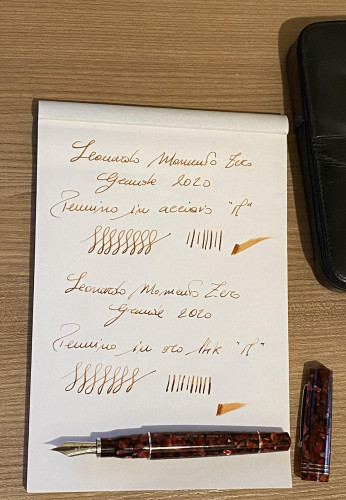 Leonardo Momento Zero
Grande 2020
Pennino in acciaio "M"
Leonardo Momento Zero
Grande 2020
Pennino in oro 14k "M"